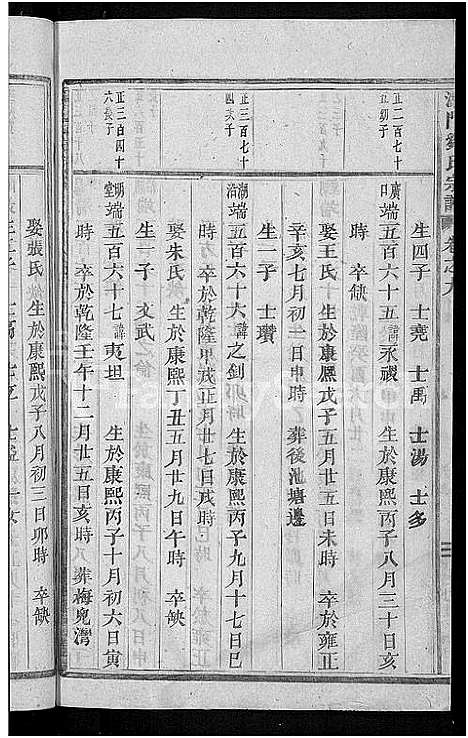 鄒氏宗譜 卷之九
生四子 士堯 士禹 士湯 士多
正二百七十五朝子
廣口端五百六十五諱永禝 生於康熙丙子八月三十日亥
時 卒缺
娶王氏 生於康熙戊子五月廿五日未時 卒於雍正
辛亥七月初三日申時 葬後池塘邊
生一子 士瓚
正三百七十四大子
湖沿端五百六十六諱之劍 生於康熙丙子九月十七日巳
時 卒於乾隆甲戌正月廿七日戌時
娶朱氏 生於康熙丁丑五月廿九日午時 卒缺
生一子 文武
正三百四十六長子
明堂端五百六十七諱夷坦 生於康熙丙子十月初六日寅
時 卒於乾隆壬午十二月廿五日亥時 葬梅兒灣
娶張氏 生於康熙戊子八月初三日卯時 卒缺